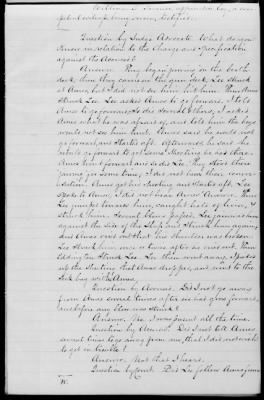 Question by Judge Advocate. What do you
know in relation to the Charge and Specification
against the Accused?
Answer. They began jawing on the berth
deck, then they came on the gun deck, Lee struck
at Ames, but I did not see him hit him. Then Ames
struck Lee. Lee asked Ames to go forward. I told
Ames to go forward, as he should I think. I asked
Ames what he was afraid of, and told him the boys
would not see him hurt. Ames said he would not
go forward, and started off. Afterwards he said he
would go forward to get some
Ames went forward and so did Lee. They stood there
jawing for some time, I did not hear their conver-
sation. Ames got up and started off. Lee
spoke to Ames, I did not hear Ames' Answer. Then
Lee jumped towards him, caught hold of him, &
struck him. Several blows passed. Lee jammed him
against the side of the ship and struck him again,
and Ames said that his shoulder was broken.
Lee struck him once or twice after he said so. Then
struck Lee. Lee then went away. I picked
up the that Ames dropped, and went to the
with Ames.
Question by Accused. Did I not go away
from Ames several times after we had gone forward,
and before any blow was struck?
Answer. No. I was present all the time.
Question by Accused. Did I not tell Ames
several times to go away from me, that I did not wish
to get in trouble?
Answer. Not that I heard.
Question by Court. Did Lee follow Ames from